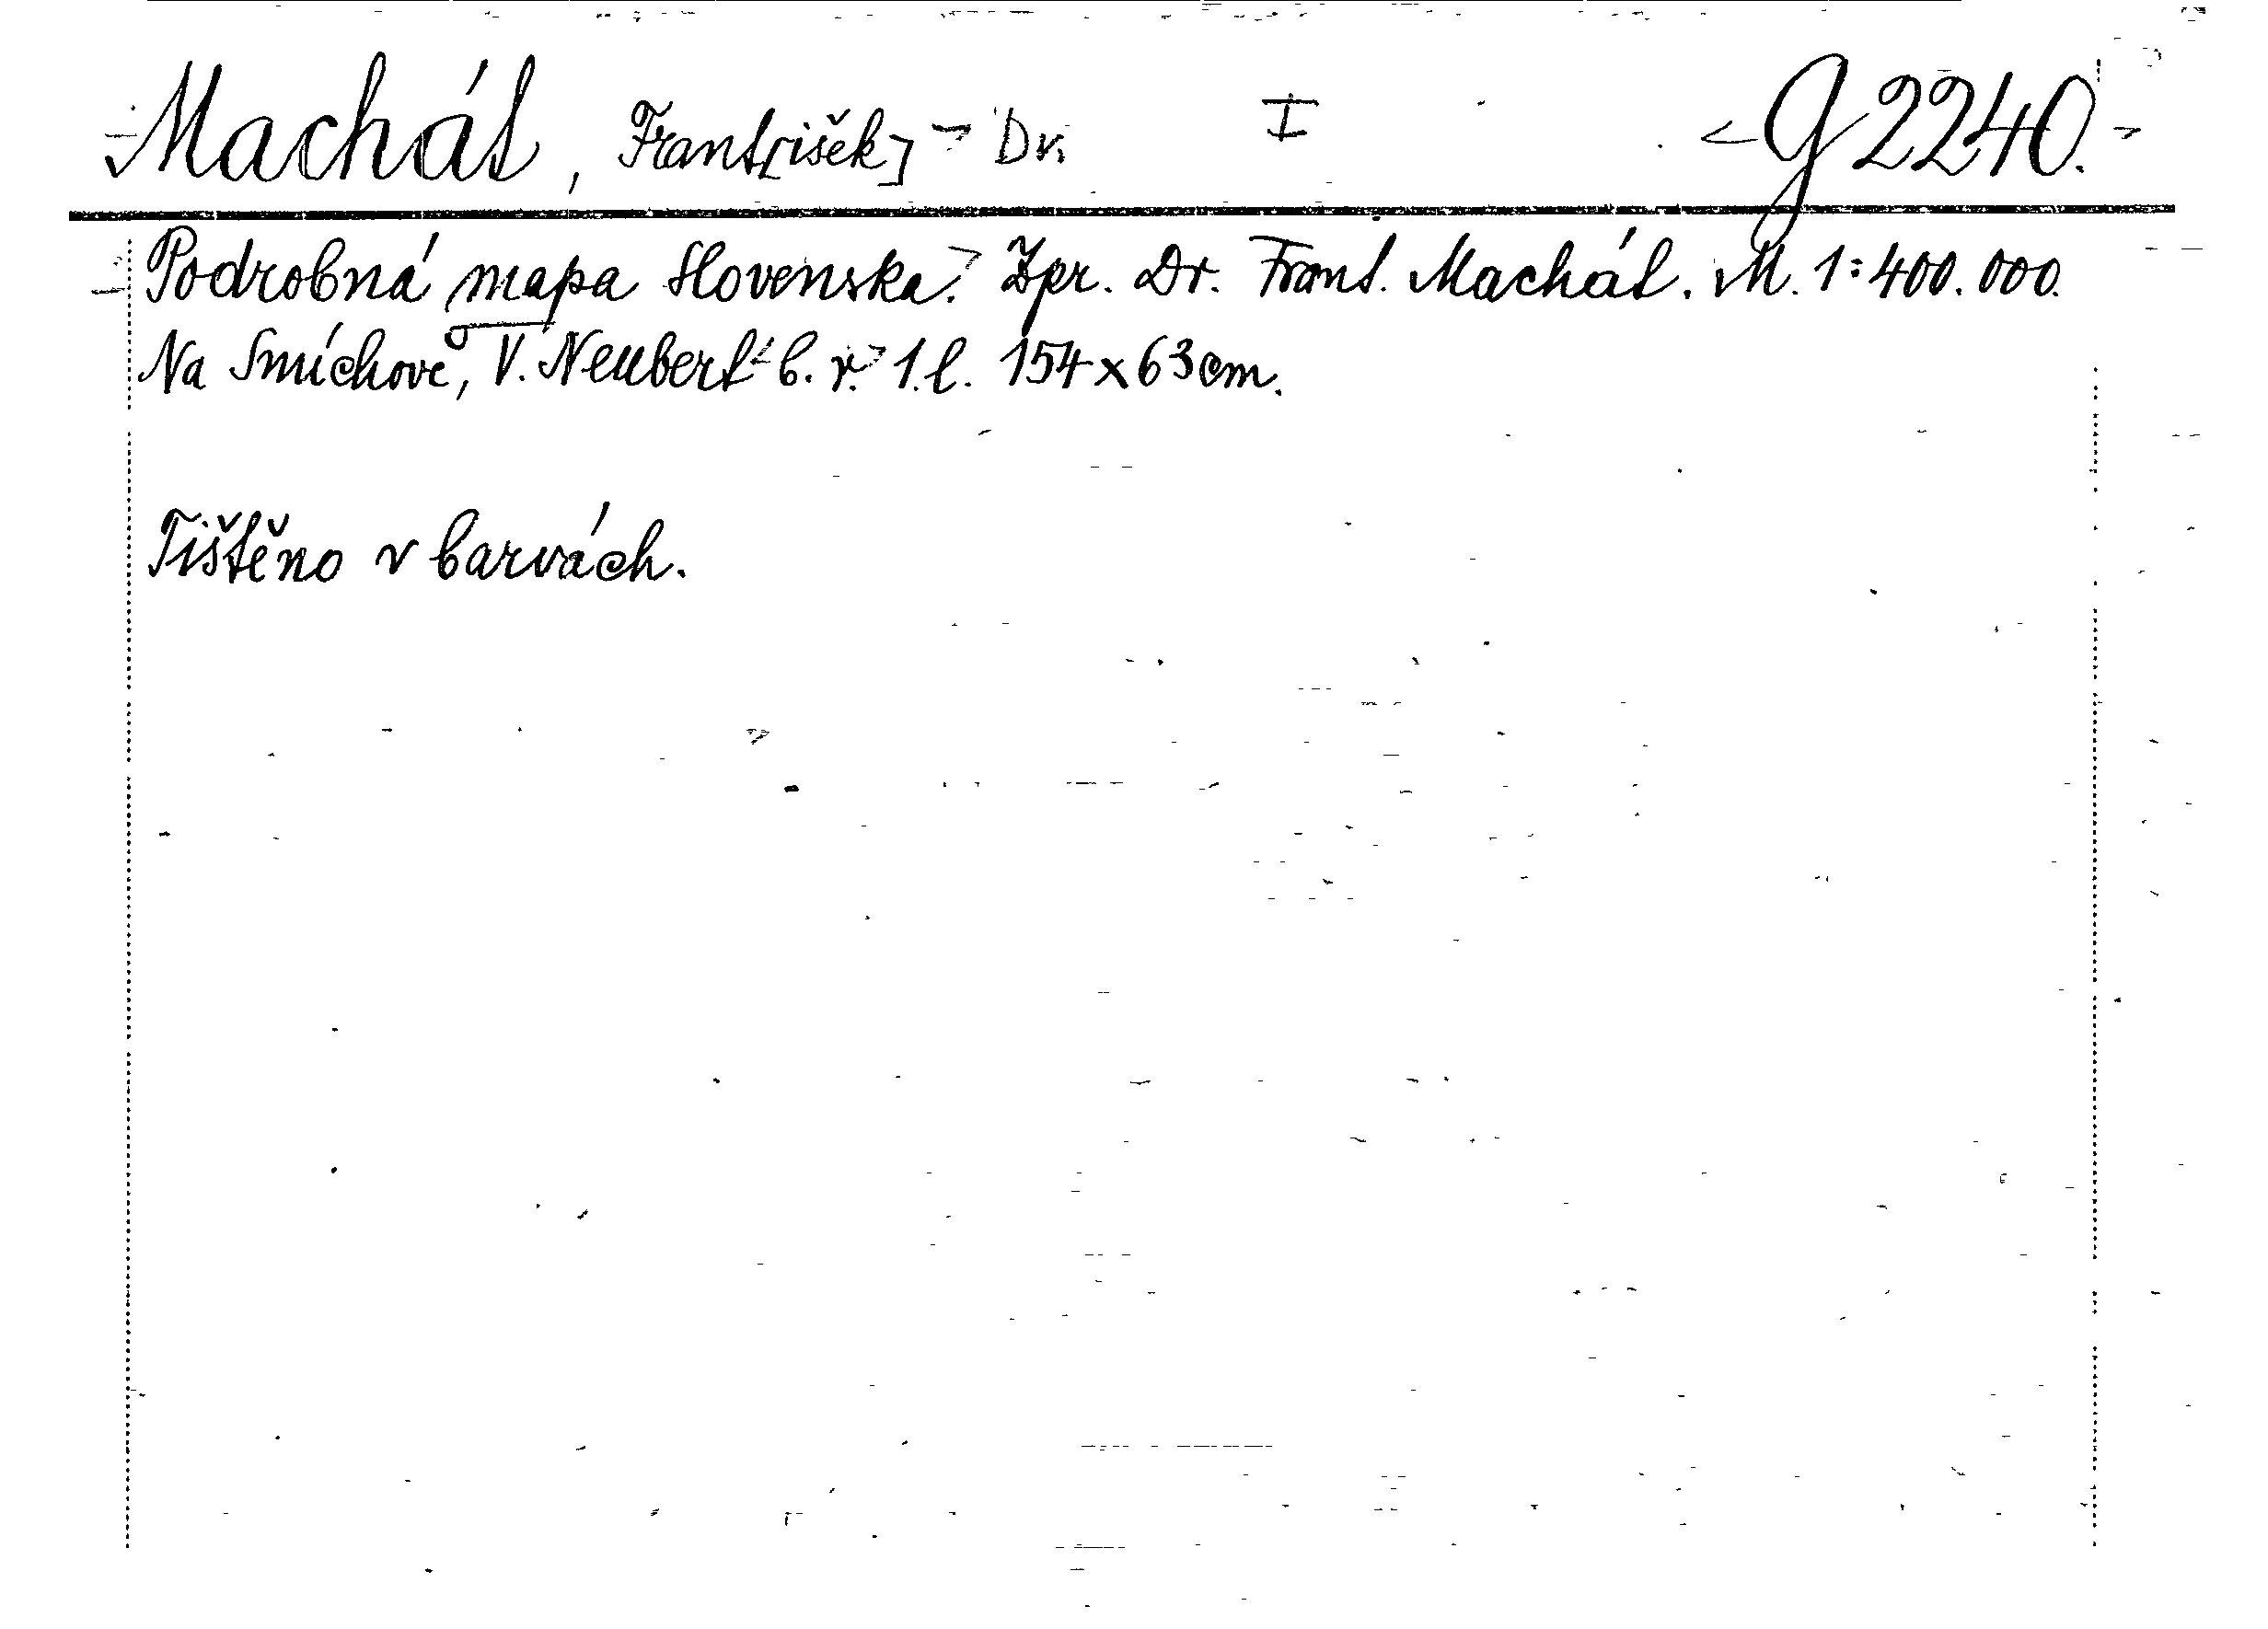 Machát, Frant[išek] Dr. I G 2240.
Podrobná mapa Slovenska. Zpr. Dr. Frant. Machát. M. 1:400.000.
Na Smíchově, V. Neubert b. r. 1.l. 154x63cm.
Tištěno v barvách.